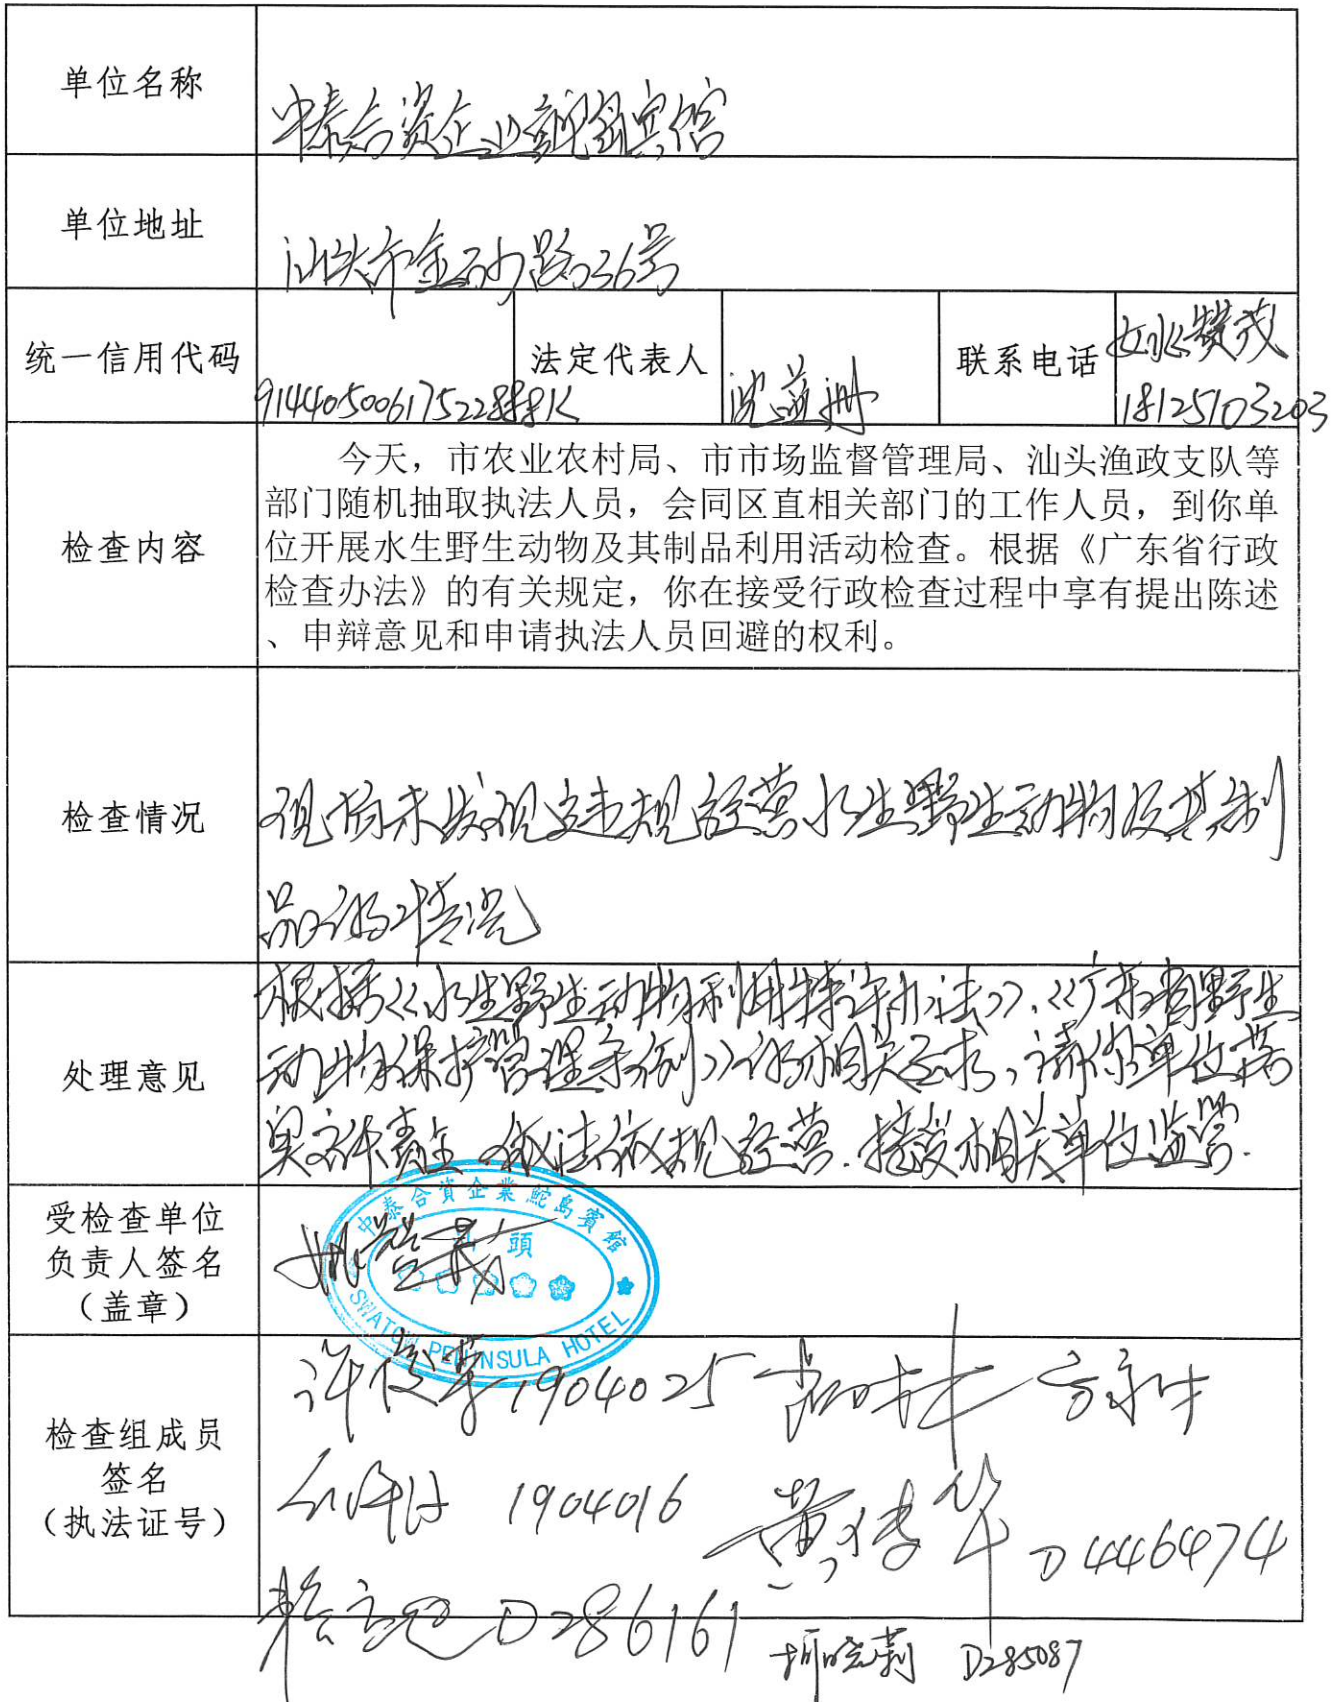 单位名称
中泰合资企业鮀岛宾馆
单位地址
汕头市金砂路36号
统一信用代码
法定代表人
沈益册
联系电话
姚赞茂
914405006175228881K
18125103203
检查内容
今天，市农业农村局、市市场监督管理局、汕头渔政支队等
部门随机抽取执法人员，会同区直相关部门的工作人员，到你单
位开展水生野生动物及其制品利用活动检查。根据《广东省行政
检查办法》的有关规定，你在接受行政检查过程中享有提出陈述
、申辩意见和申请执法人员回避的权利。
检查情况
现场未发现违规经营水生野生动物及其制
品的情况
处理意见
根据《水生野生动物利用特许办法》、《广东省野生
动物保护管理条例》的相关要求，请你单位落
实主体责任，依法依规经营，接受相关单位监管.
受检查单位
负责人签名
（盖章）
中泰合資企業鮀島賓館
汕頭
SWATOW PENINSULA HOTEL
检查组成员
签名
（执法证号）
1904025
1904016
D446474
D286161
D285087